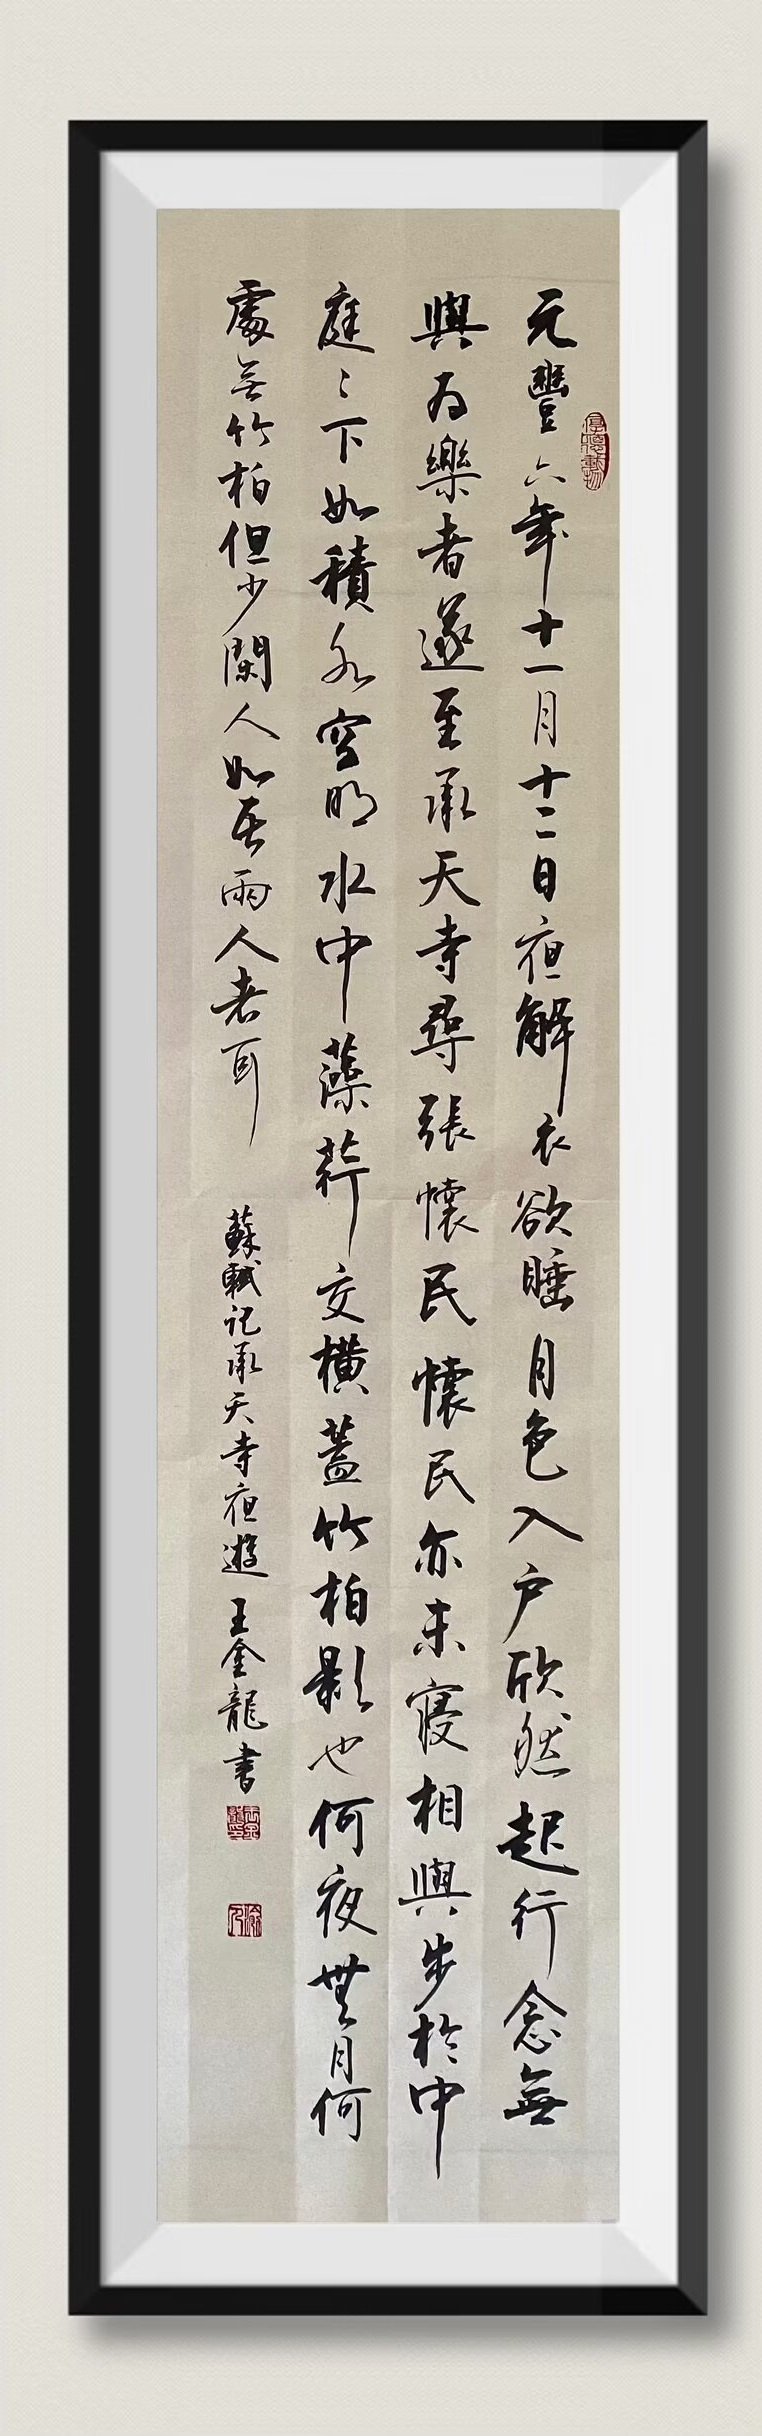 厚德載物
元豐六年十一月十二日夜解衣欲睡月色入户欣然起行念無
與為樂者遂至承天寺尋張懷民懷民亦未寢相與步於中
庭〻下如積水空明水中藻荇交橫蓋竹柏影也何夜無月何
處無竹柏但少閑人如吾兩人者耳
蘇軾記承天寺夜遊 王金龍書
王金龍印